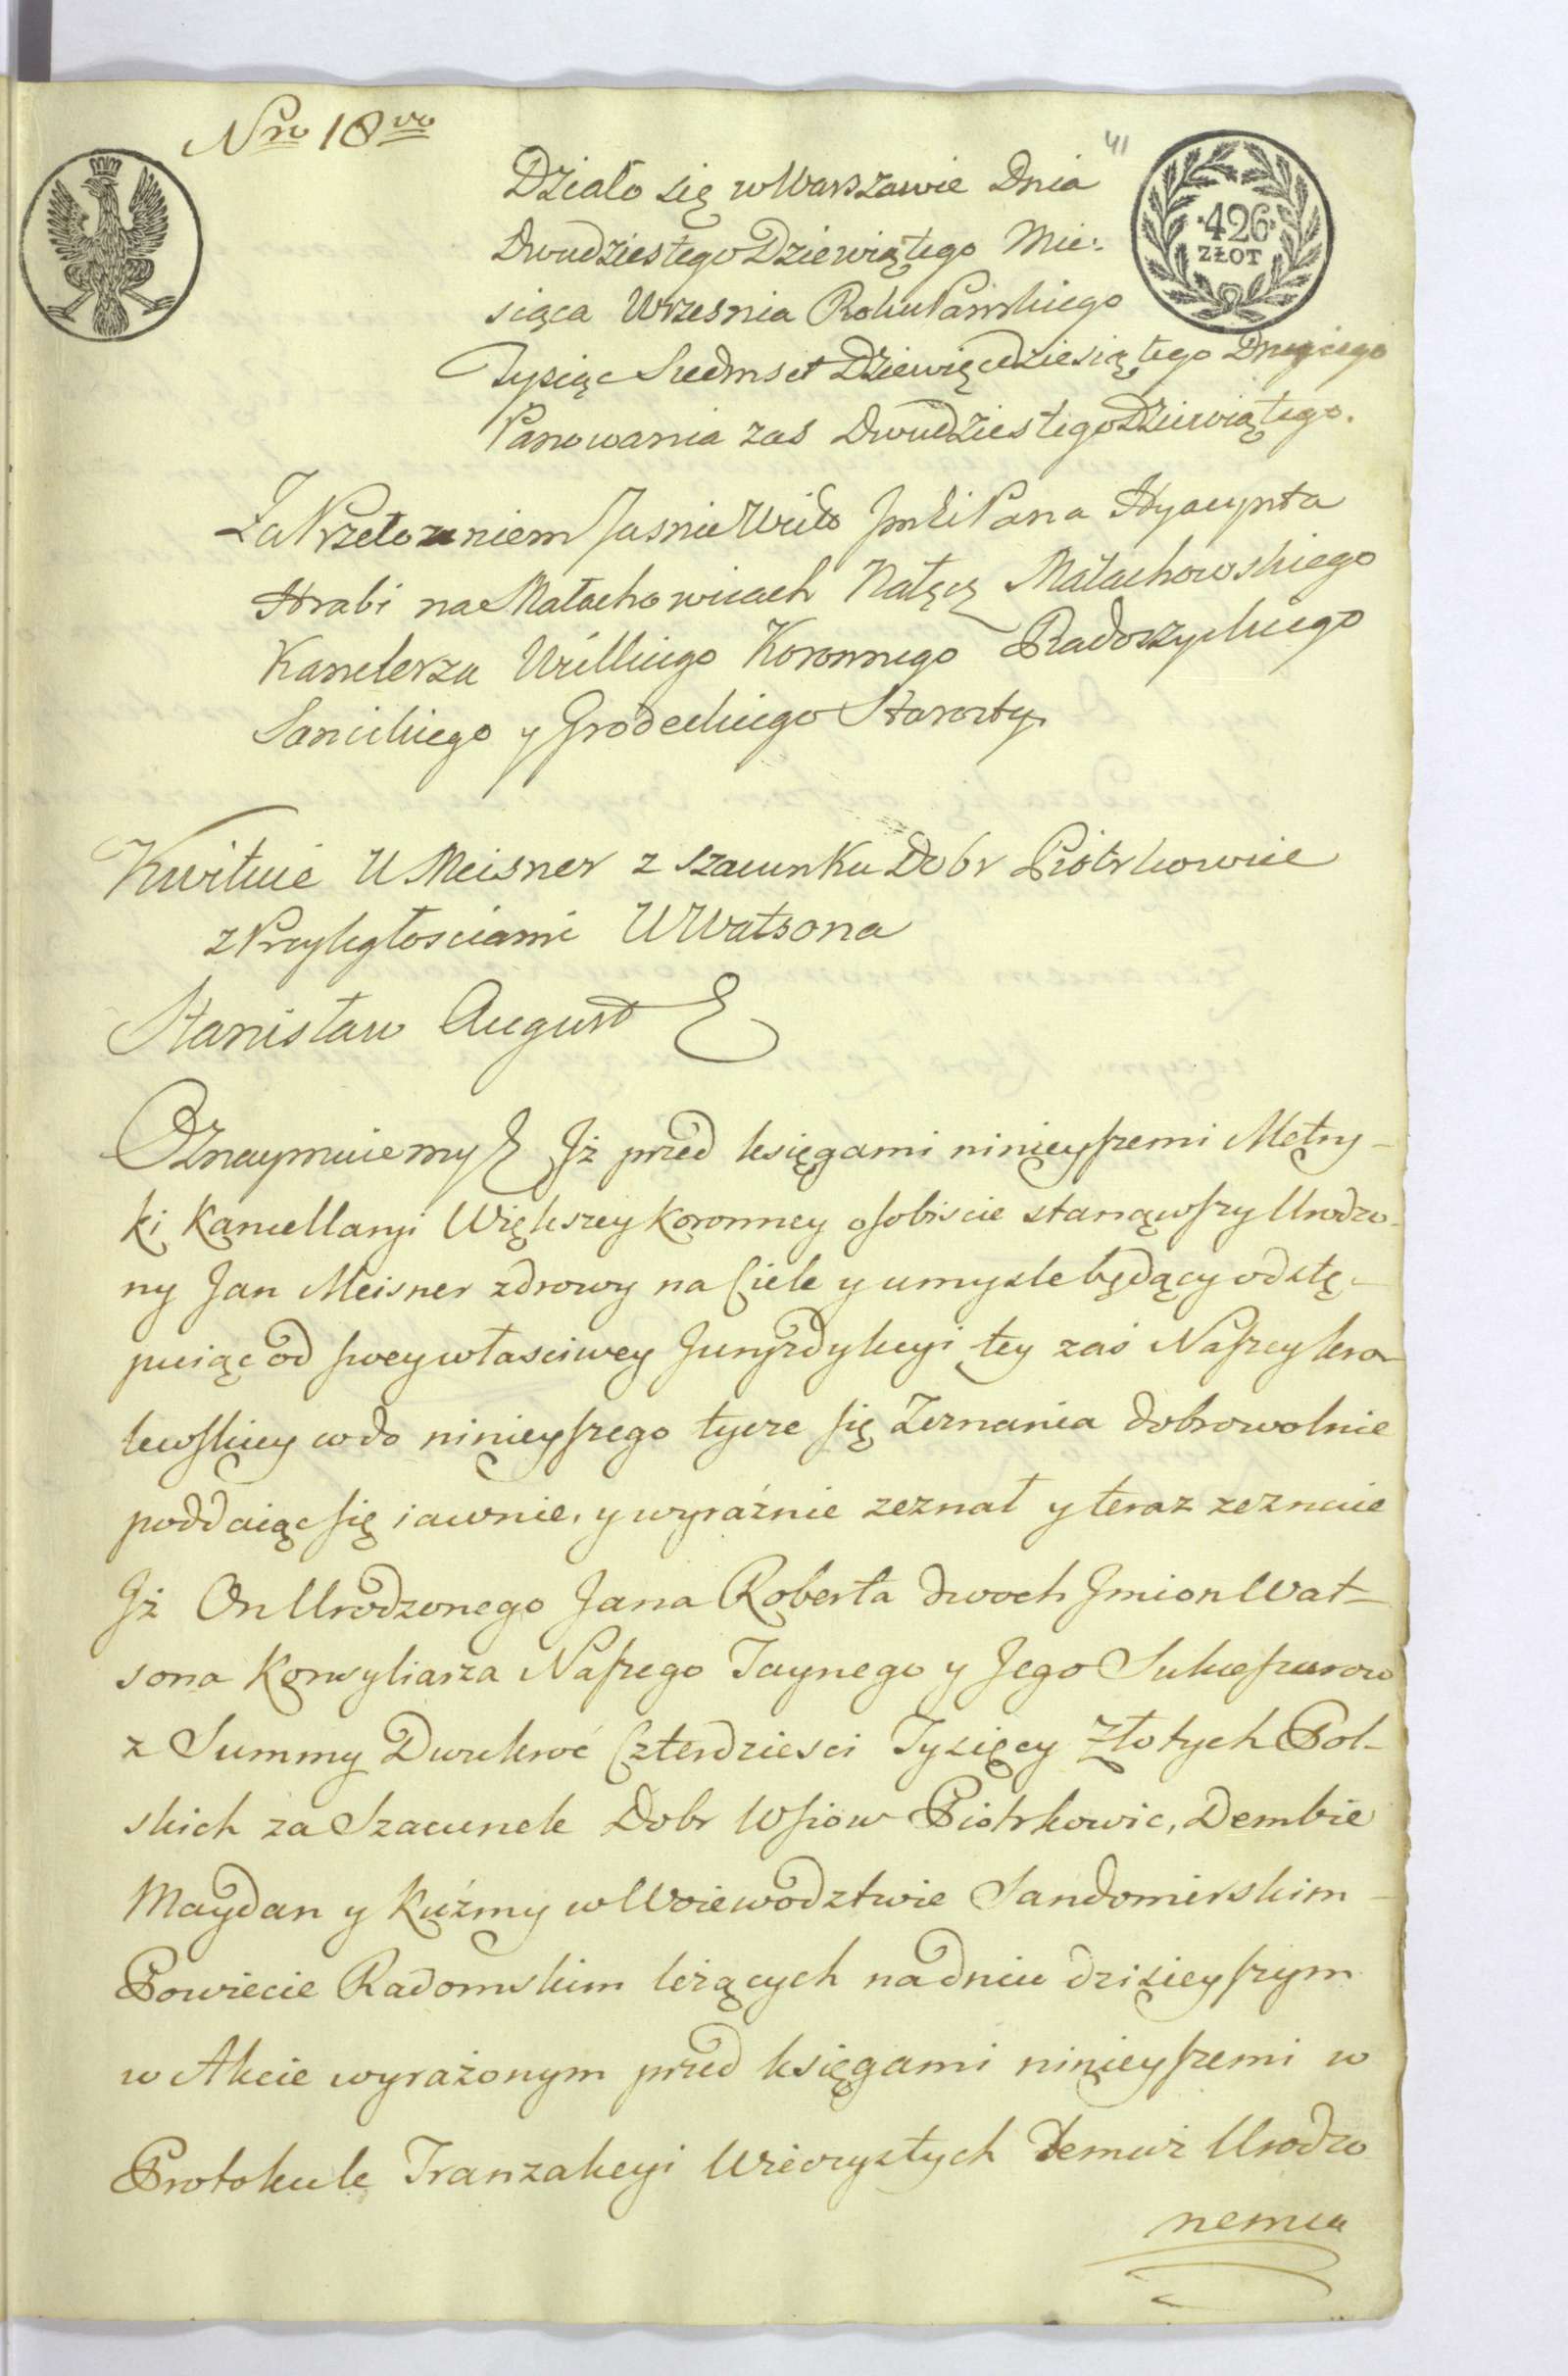 Nro 18vo
41
Działo się w Warszawie Dnia
Dwudziestego Dziewiątego Mie:
siąca Wrzesnia Roku Pańskiego
Tysiąc Siedmset Dziewięcdziesiątego Drugiego
Panowania zas Dwudziestego Dziewiątego.
·426·
ZŁOT
Za Przełożeniem Jasnie Wiel Jmći Pana Hyacynta
Hrabi na Małachowicach Nałęcz Małachowskiego
Kanclerza Wielkiego Koronnego Radoszyckiego
Sanickiego y Grodeckiego Starosty
Kwituie U Meisner z szacunku Dobr Piotrkowice
z Przyległosciami U Watsona
Stanisław August
Oznaymuiemy Jż przed księgami ninieyszemi Metry-
ki Kancellaryi Większey Koronney osobiscie stanąwszy Urodzo-
ny Jan Meisner zdrowy na Ciele y umysle będący odstę-
puiąc od swey własciwey Juryzdykcyi tey zaś Naszey kro-
lewskiey co do ninieyszego tycze się Zeznania dobrowolnie
poddaiąc się iawnie, y wyraźnie zeznał y teraz zeznaie
Jż On Urodzonego Jana Roberta dwoch Jmion Wat-
sona Konsyliarza Naszego Taynego y Jego Sukcessorow
z Summy Dwukroć Czterdziesci Tysięcy Złotych Pol-
skich za Szacunek Dobr Wsiow Piotrkowic, Dembie
Maydan y Kuźmy w Woiewodztwie Sandomirskim
Powiecie Radomskim leżących na dniu dzisieyszym
w Akcie wyrażonym przed księgami ninieyszemi w
Protokule Tranzakcyi Wieczystych temuż Urodzo
nemu